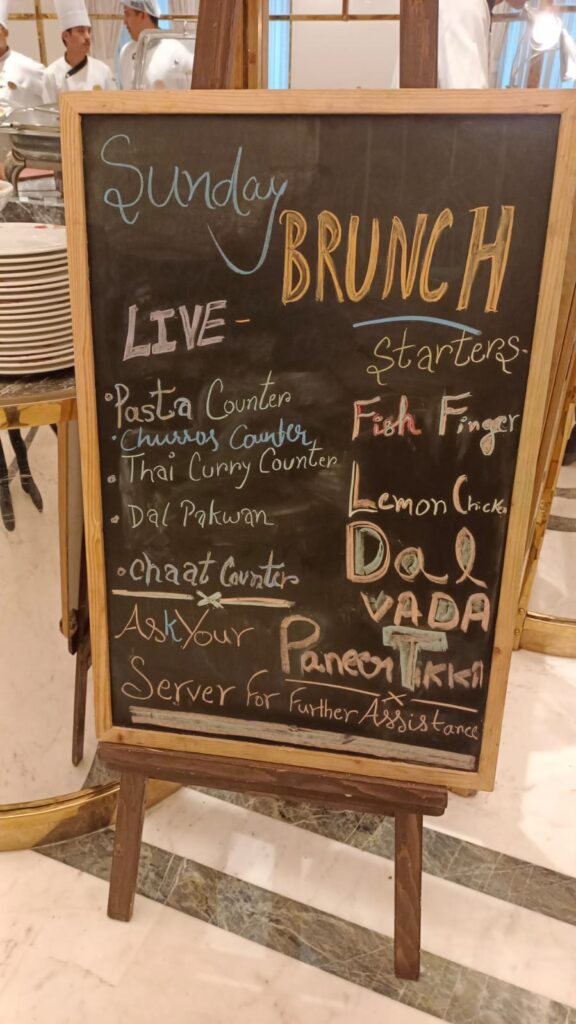 Sunday
BRUNCH
LIVE -
• Pasta Counter
• Churros Counter
• Thai Curry Counter
• Dal Pakwan
• Chaat Counter
Starters
Fish Finger
Lemon Chicken
Dal
VADA
Paneer Tikka
Ask Your
Server For Further Assistance